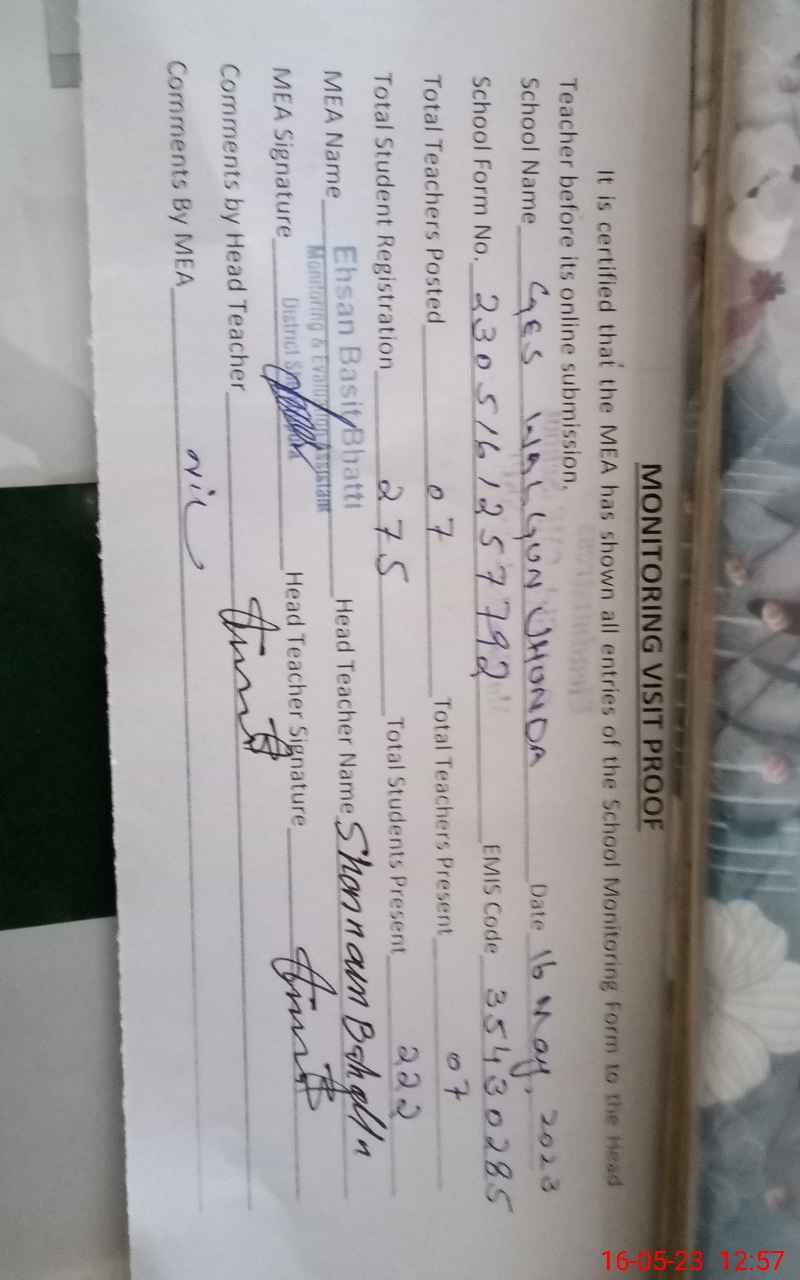 MONITORING VISIT PROOF
It is certified that the MEA has shown all entries of the School Monitoring Form to the Head
Teacher before its online submission.
School Name GES Date 16 May, 2023
School Form No. 2305161257792 EMIS Code 35430285
Total Teachers Posted 07 Total Teachers Present 07
Total Student Registration 275 Total Students Present 222
MEA Name Ehsan Basit Bhatti Head Teacher Name
Monitoring & Evaluation Assistant
MEA Signature District Head Teacher Signature
Comments by Head Teacher
Comments By MEA Nil
16-05-23 12:57